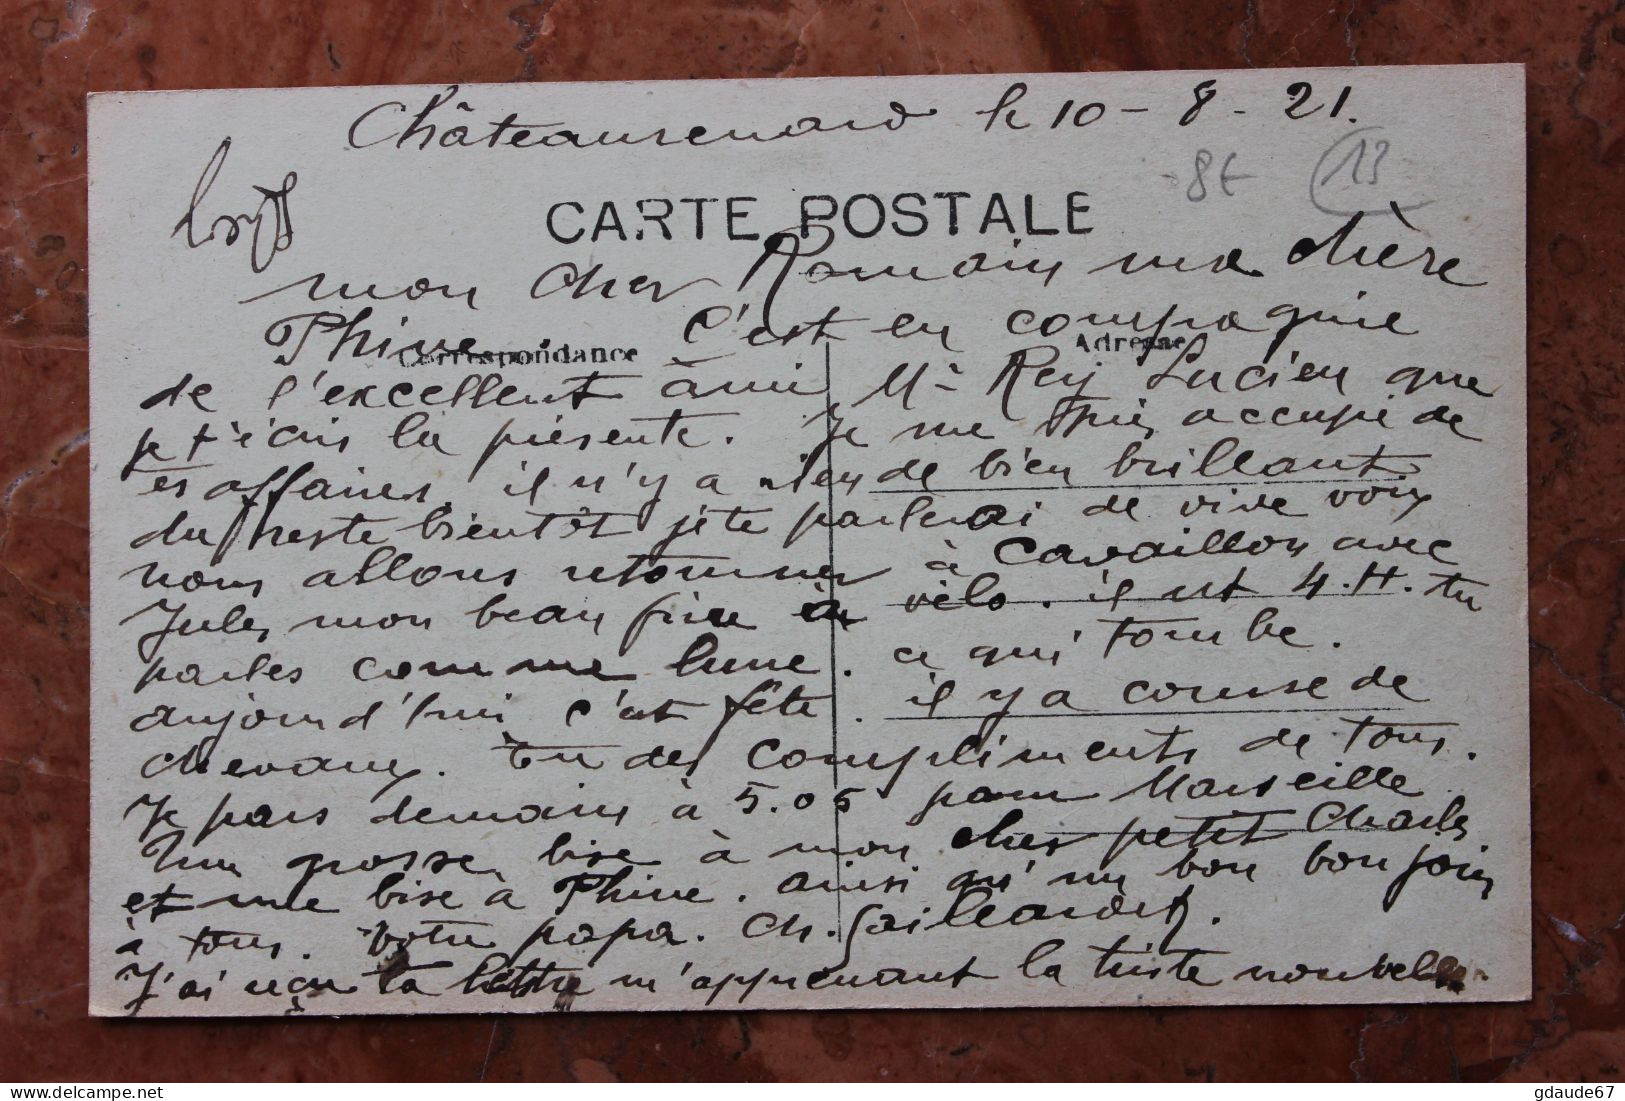 Châteaurenard le 10 - 8 - 21.
-8€ 13
CARTE POSTALE
mon cher Romain ma chère
Phine. c'est en compagnie
Correspondance Adresse
de l'excellent ami Mr Rey Lucien que
je t'écris la présente. Je me suis occupé de
tes affaires, il n'y a rien de bien brillant
du reste bientôt je te parlerai de vive voix
nous allons retourner à Cavaillon avec
Jules mon beau frère en vélo. il est 4.H. tu
parles comme lune. ce qui tombe.
aujourd'hui c'est fête. il y a course de
chevaux. tu des compliments de tous.
Je pars demain à 5.05 pour Marseille
Une grosse bise à mon cher petit Charles
et une bise à Phine. ainsi qu'un bon bonjour
à tous. votre papa. Ch. Gaillardet.
J'ai reçu ta lettre m'apprenant la triste nouvelle
gdaude67